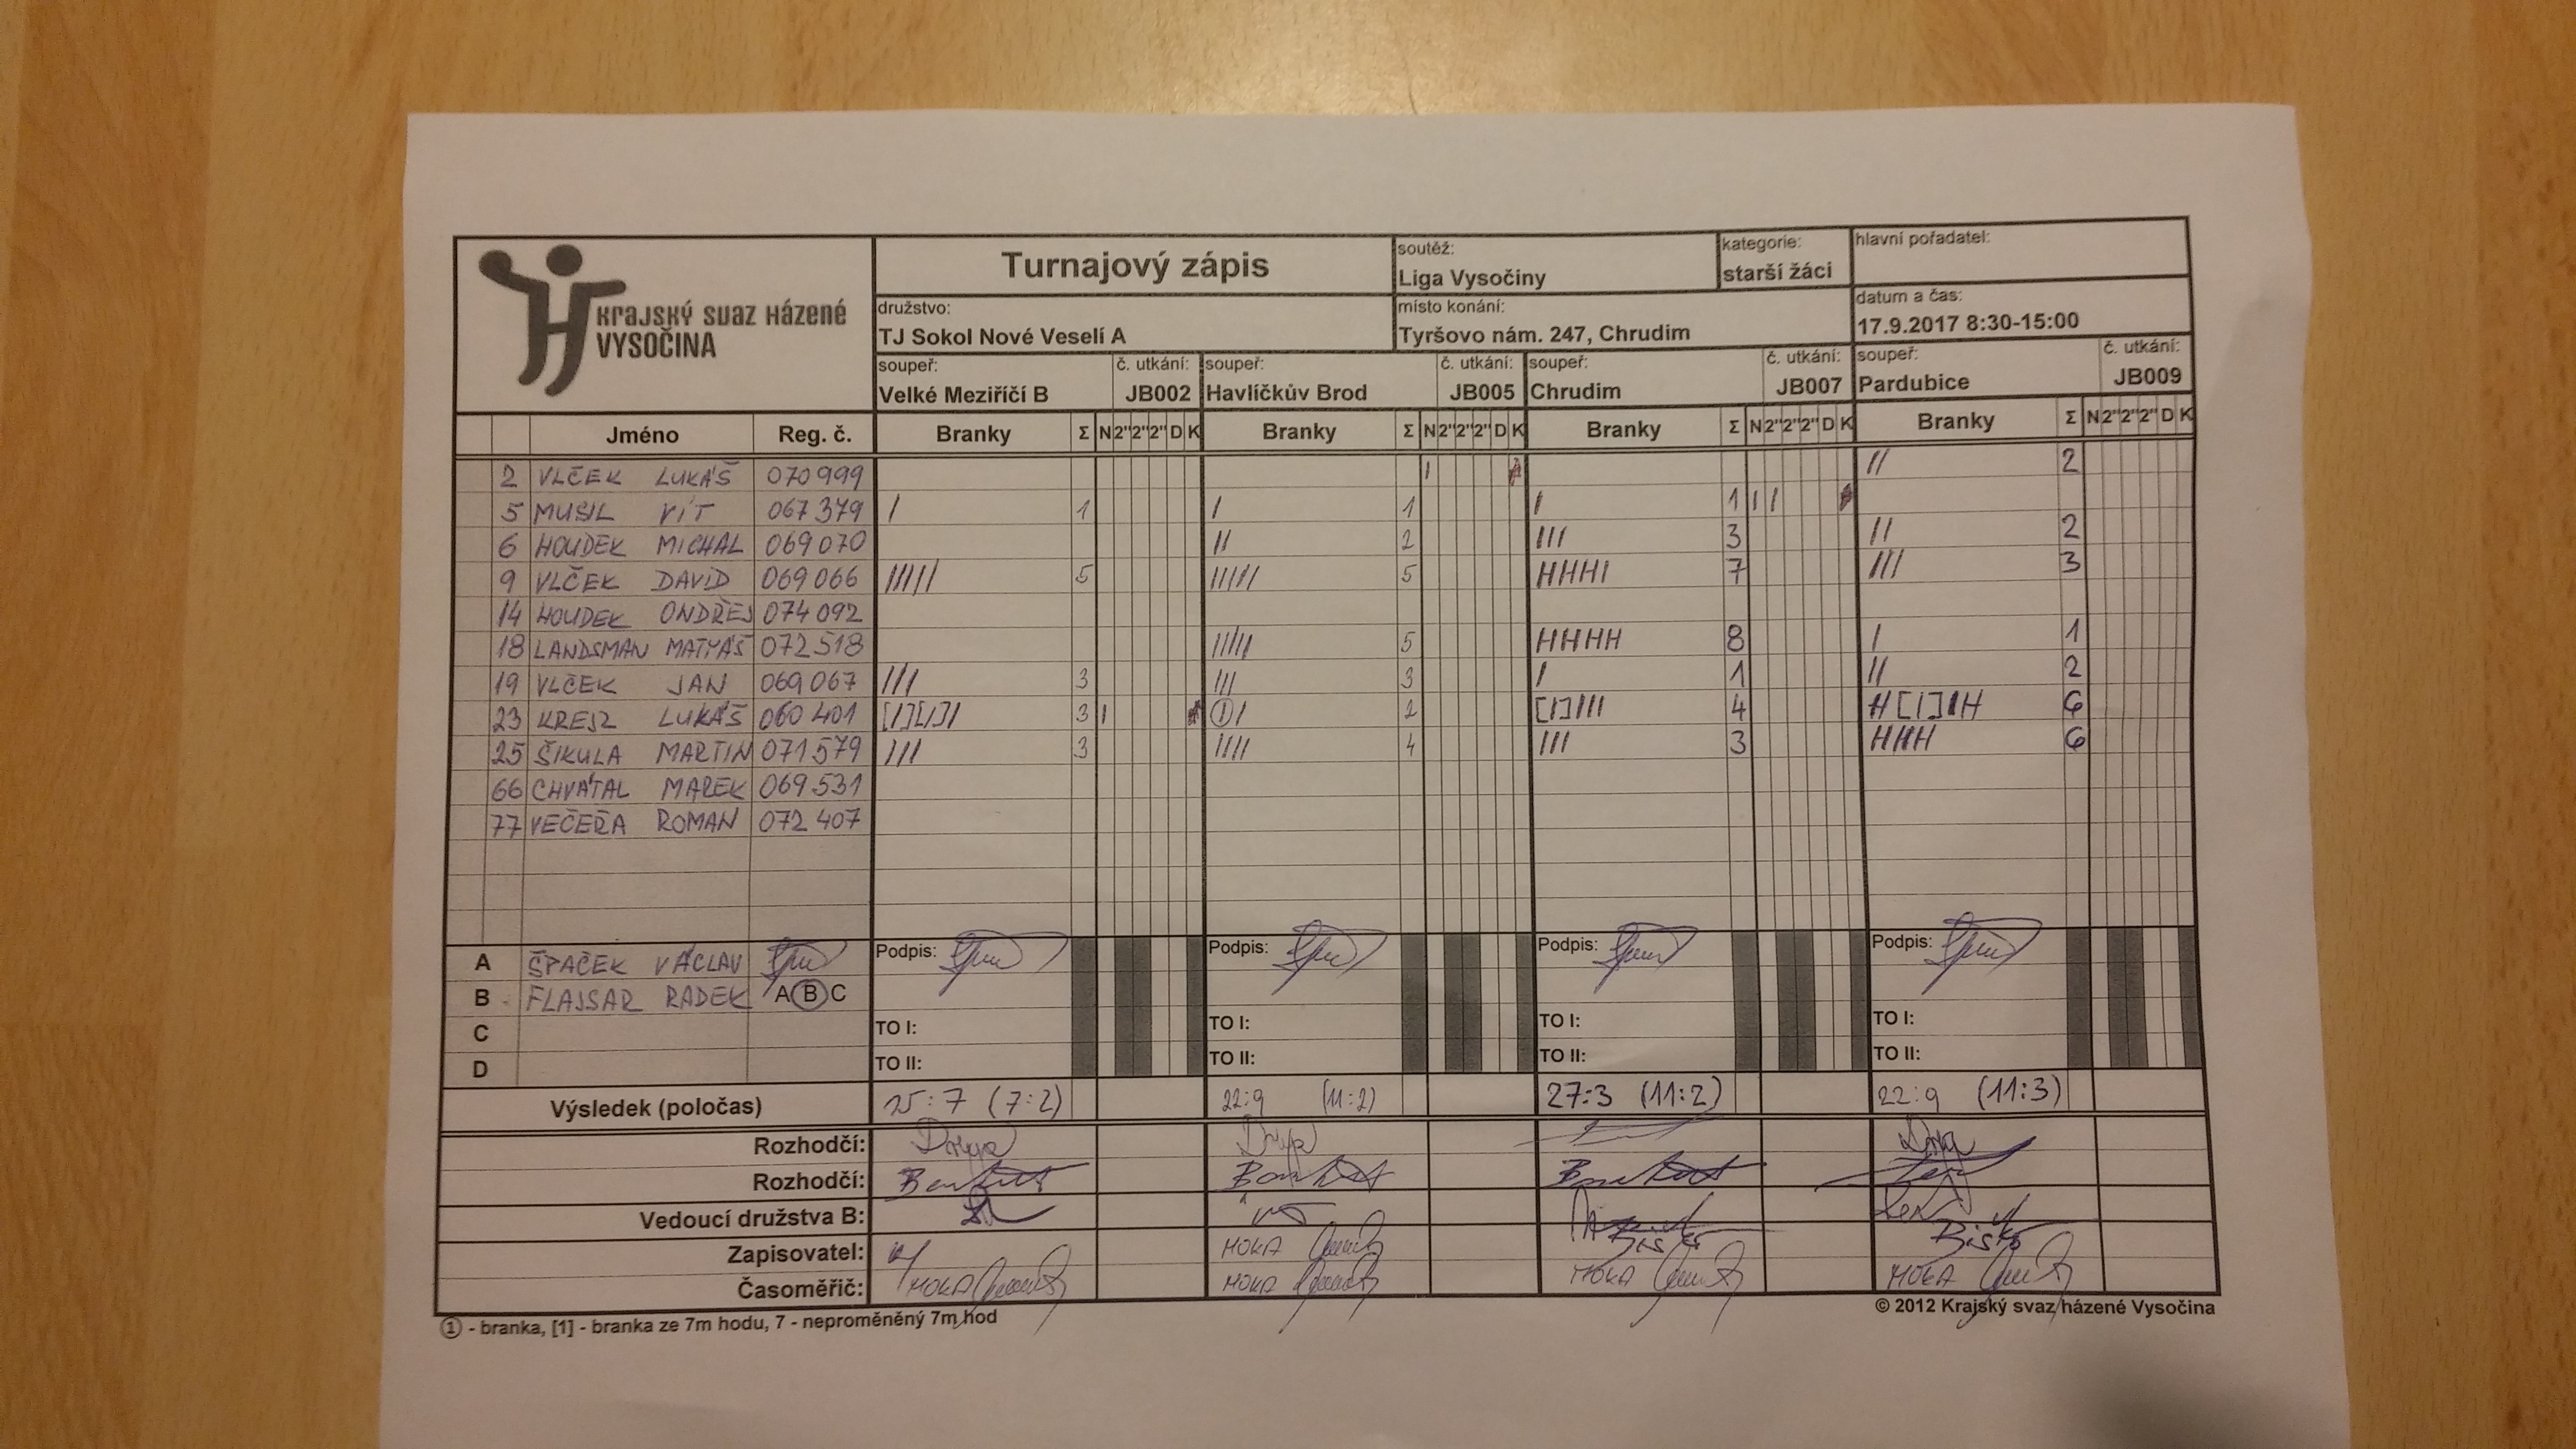 Krajský svaz házené
VYSOČINA
Turnajový zápis
soutěž:
Liga Vysočiny
kategorie:
starší žáci
hlavní pořadatel:
družstvo:
TJ Sokol Nové Veselí A
místo konání:
Tyršovo nám. 247, Chrudim
datum a čas:
17.9.2017 8:30-15:00
soupeř: č. utkání: soupeř: č. utkání: soupeř: č. utkání: soupeř: č. utkání:
Velké Meziříčí B JB002 Havlíčkův Brod JB005 Chrudim JB007 Pardubice JB009
Jméno Reg. č. Branky Σ N 2" 2" 2" D K Branky Σ N 2" 2" 2" D K Branky Σ N 2" 2" 2" D K Branky Σ N 2" 2" 2" D K
2 VLČEK LUKÁŠ 070999 I II 2
5 MUSIL VÍT 067379 I 1 I 1 I 1 I I
6 HOUDEK MICHAL 069070 II 2 III 3 II 2
9 VLČEK DAVID 069066 IIIII 5 IIIII 5 HHHI 7 III 3
14 HOUDEK ONDŘEJ 074092
18 LANDSMAN MATYÁŠ 072518 IIIII 5 HHHH 8 I 1
19 VLČEK JAN 069067 III 3 III 3 I 1 II 2
23 KREJZ LUKÁŠ 060401 [I][I]I 3 I ①I 2 [I]III 4 H[I]IH 6
25 ŠIKULA MARTIN 071579 III 3 IIII 4 III 3 HHH 6
66 CHVÁTAL MAREK 069531
77 VEČEŘA ROMAN 072407
A ŠPAČEK VÁCLAV Podpis: Podpis: Podpis: Podpis:
B FLAJSAR RADEK A B C
C TO I: TO I: TO I: TO I:
D TO II: TO II: TO II: TO II:
Výsledek (poločas) 15:7 (7:2) 22:9 (11:2) 27:3 (11:2) 22:9 (11:3)
Rozhodčí:
Rozhodčí:
Vedoucí družstva B:
Zapisovatel: MOKA
Časoměřič: MOKA MOKA MOKA MOKA
① - branka, [1] - branka ze 7m hodu, 7 - neproměněný 7m hod
© 2012 Krajský svaz házené Vysočina